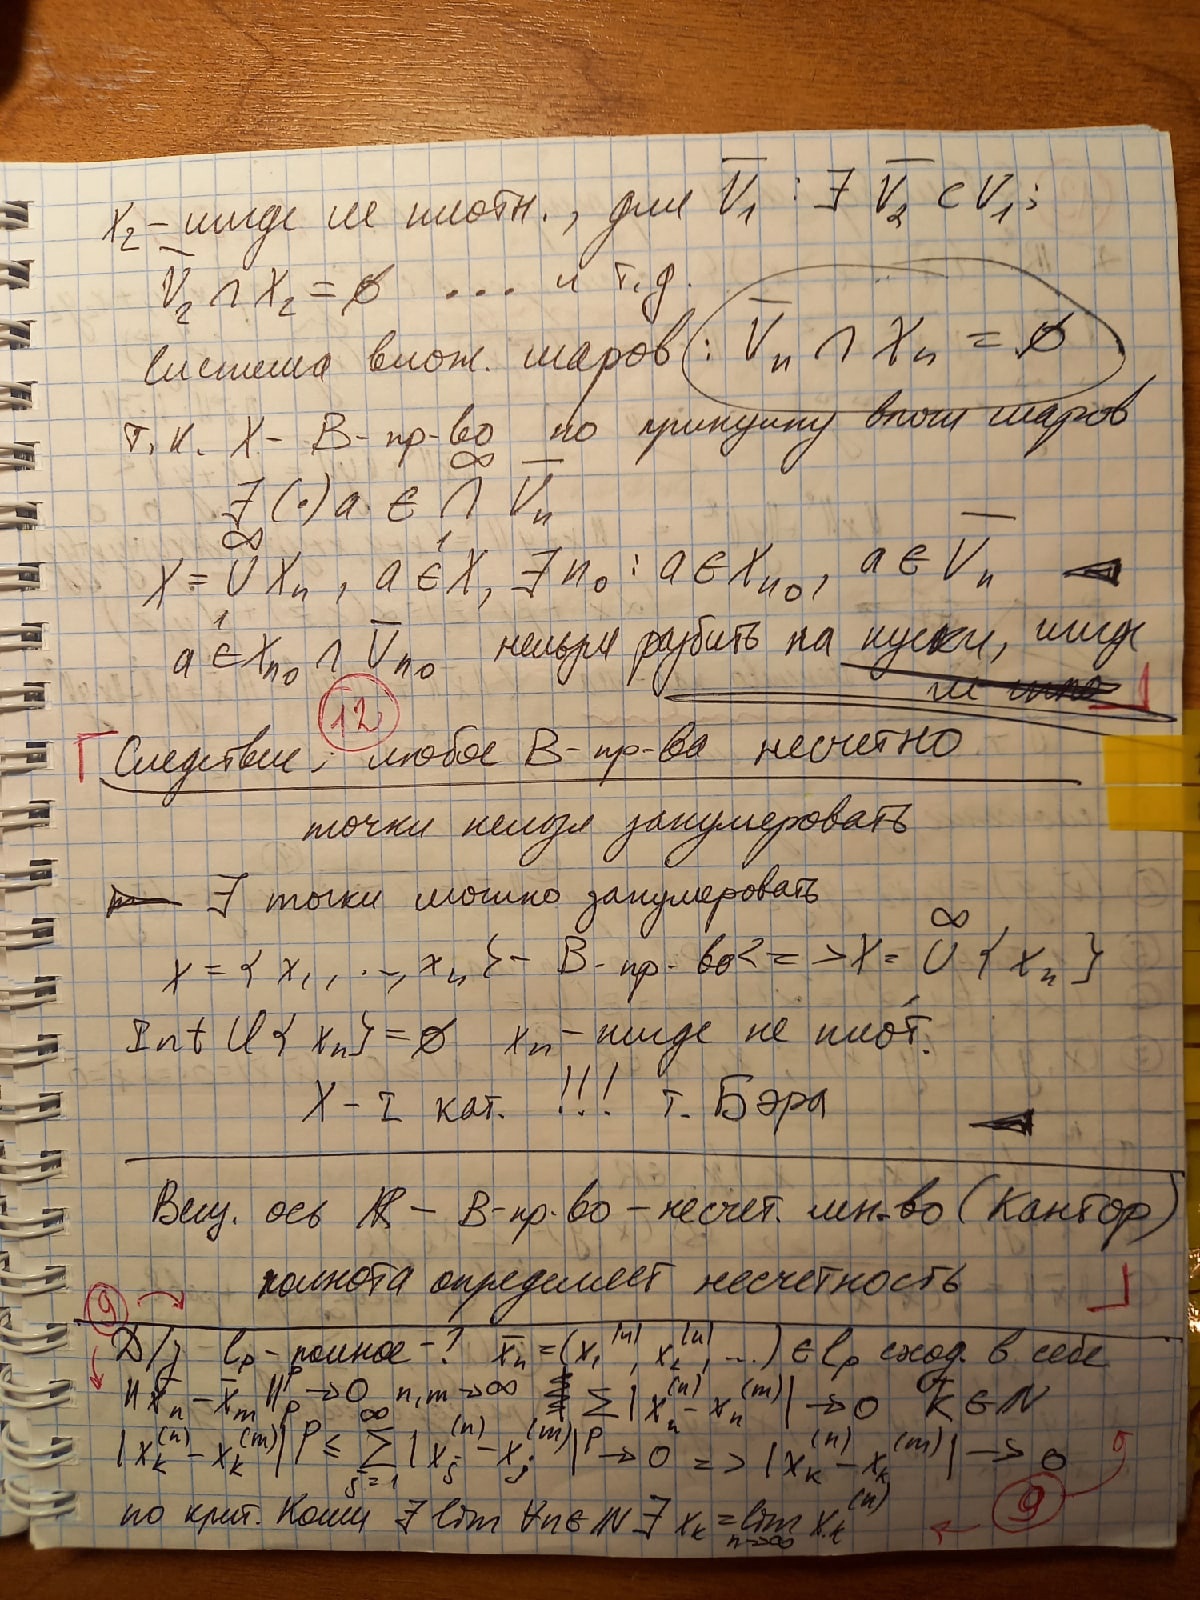 X₂ – нигде не плотн., для V̅₁ : ∃ V̅₂ ⊂ V₁ :
V̅₂ ∩ X₂ = ∅ ... и т.д.
Система влож. шаров : V̅ₙ ∩ Xₙ = ∅
т.к. X – B-пр-во по принципу влож шаров
∃ (·) a ∈ ∩^∞ V̅ₙ
X = ∪^∞ Xₙ, a ∈ X, ∃ n₀ : a ∈ Xₙ₀, a ∈ V̅ₙ ◄
a ∈ Xₙ₀ ∩ V̅ₙ₀ нельзя разбить на куски, нигде
не
12
Следствие: любое B-пр-во несчетно
точки нельзя занумеровать
∃ точки можно занумеровать
X = {x₁, ..., xₙ} – B-пр-во <=> X = ∪^∞ {xₙ}
Int ∪{xₙ} = ∅ xₙ – нигде не плот.
X – I кат. !!! т. Бэра
◄
Вещ. ось ℝ – B-пр-во – несчет. мн-во (Кантор)
полнота определяет несчетность
9
Д/з lₚ – полное – ? x̅ₙ = (x₁⁽ⁿ⁾, x₂⁽ⁿ⁾, ...) ∈ lₚ сход. в себе
‖x̅ₙ – x̅ₘ‖ₚᵖ → 0 n,m → ∞ Σ |xₙ⁽ⁿ⁾ – xₙ⁽ᵐ⁾| → 0 k ∈ N
|xₖ⁽ⁿ⁾ – xₖ⁽ᵐ⁾|ᵖ ≤ Σ_{j=1}^∞ |xⱼ⁽ⁿ⁾ – xⱼ⁽ᵐ⁾|ᵖ → 0 => |xₖ⁽ⁿ⁾ – xₖ⁽ᵐ⁾| → 0
по крит. Коши ∃ lim ∀n∈N ∃ xₖ = lim_{n→∞} xₖ⁽ⁿ⁾
9